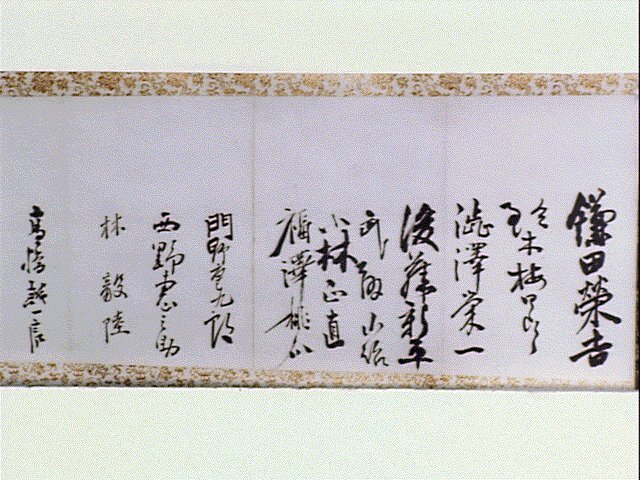 鎌田榮吉
鈴木梅四郎
澁澤栄一
後藤新平
武藤山治
小林正直
福澤桃介
門野重九郎
西野恵之助
林毅陸
高橋誠一郎